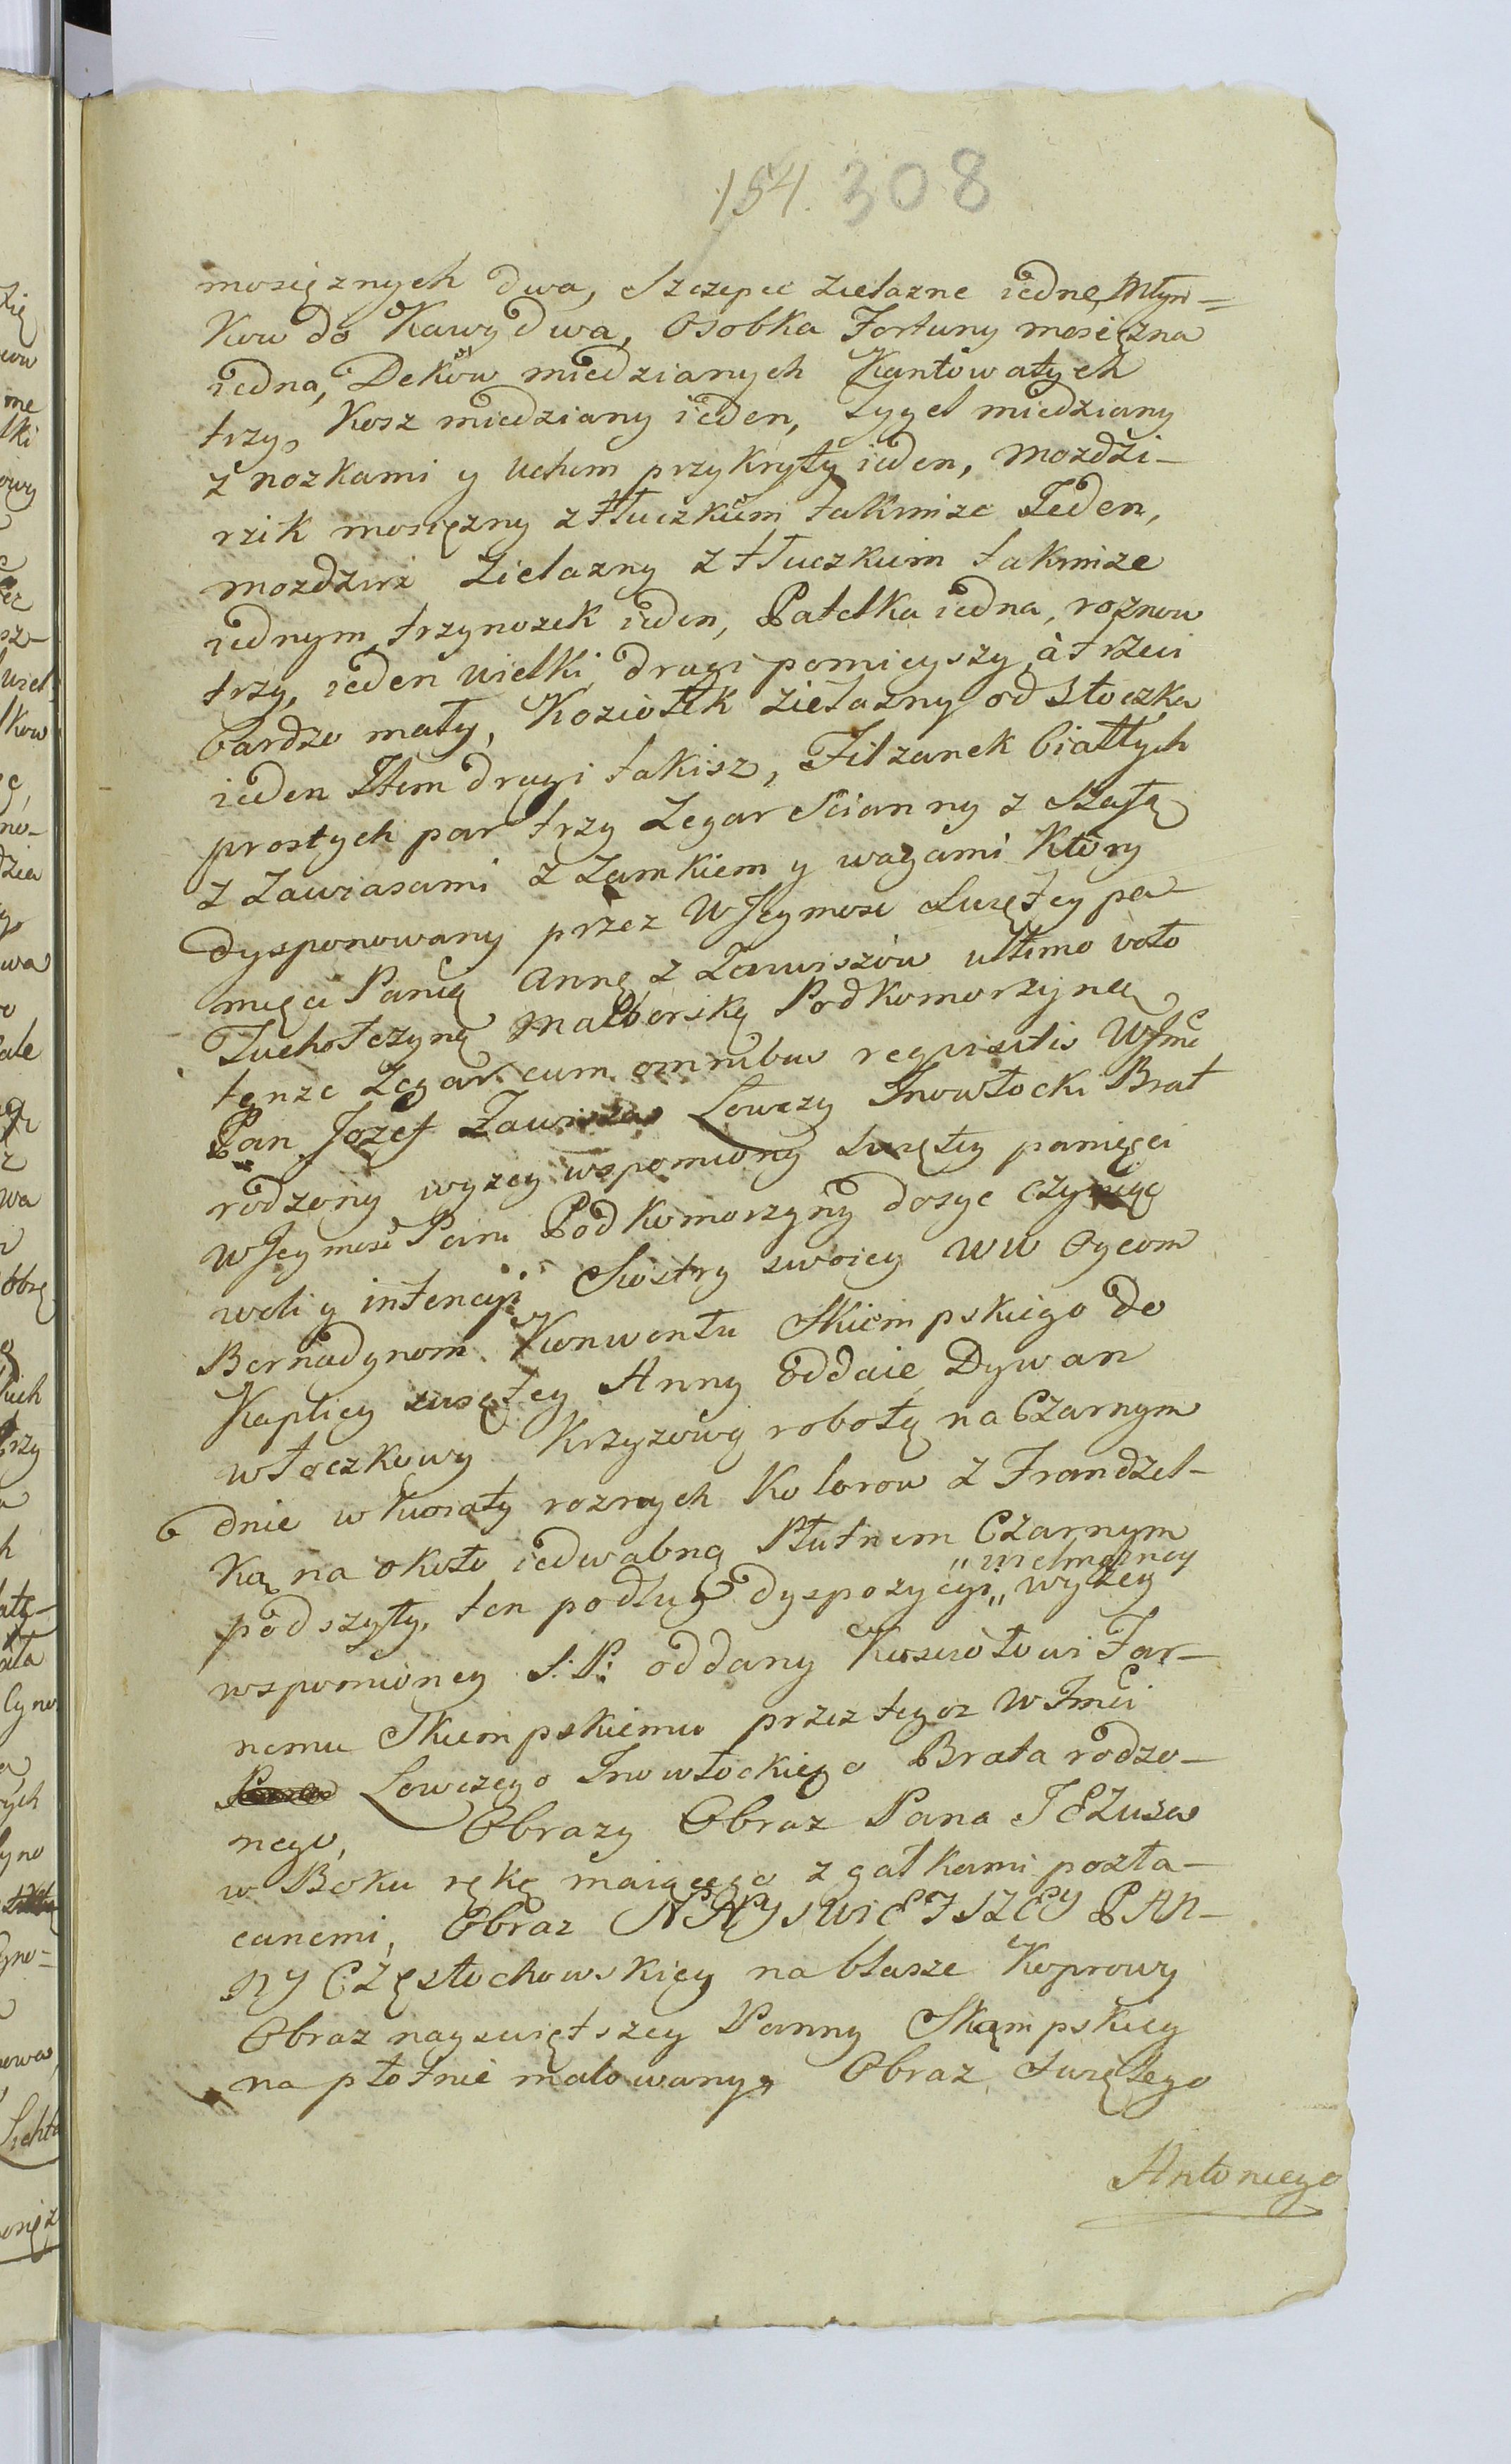 154. 308
mosięznych dwa, Szczepce zielazne iedne, Młyn=
Kow do Kawy dwa, Osobka Fortuny mosięzna
iedna, Deków miedzianych Kantowatych
trzy, Kosz miedziany ieden, Tygel miedziany
z nozkami y uchem przykryty ieden, mozdzi-
rzik mosięzny z tłuczkiem takimze Jeden,
mozdzirz zielazny z tłuczkiem takimze
iednym, trzynozek ieden, Patelka iedna, roznow
trzy, ieden wielki, drugi pomieyszy, à trzeci
bardzo mały, Koziołek zielazny od Stoczka
ieden Item drugi takisz, Filzanek białłych
prostych par trzy Zegar Scianny z Szafą
z zawiasami z zamkiem y wagami Ktory
dysponowany przez WJeymosc Swiętey pa-
mięci Panią Annę z Zawiszów ultimo voto
Tuchołczynę Malborską Podkomorzynę
tenze Zegar cum omnibus requisitis WJmć
Pan Jozef Zawisza Łowczy Inowłocki Brat
rodzony wyzey wspomiony Swiętey pamięci
WJeymosc Pani Podkomorzyny dosyc czyniąc
woli y intencyi Siostry swoiey WW Oycom
Bernadynom Konwentu Skiempskiego do
Kaplicy swiętey Anny Oddaie, Dywan
włoczkowy Krzyzową robotą na Czarnym
dnie w kwiaty roznych Kolorow z Frandzel-
ką na około iedwabną Płutnem Czarnym
podszyty, ten podług dyspozycyi „ wyzey
„ wielmozney
wspomioney S: P: oddany Kosciołowi Far-
nemu Skiempskiemu przez tegoz WJmci
Łowczego Inowłockiego Brata rodzo-
nego, Obrazy Obraz Pana JEZusa
w Boku rękę maiącego z gałkami pozła-
canemi, Obraz NAYSWIĘTSZEY PAN-
NY CZęstochowskiey na blasze Koprowy
Obraz nayswiętszey Panny Skąmpskiey
na płotnie malowany, Obraz Swiętego
Antoniego